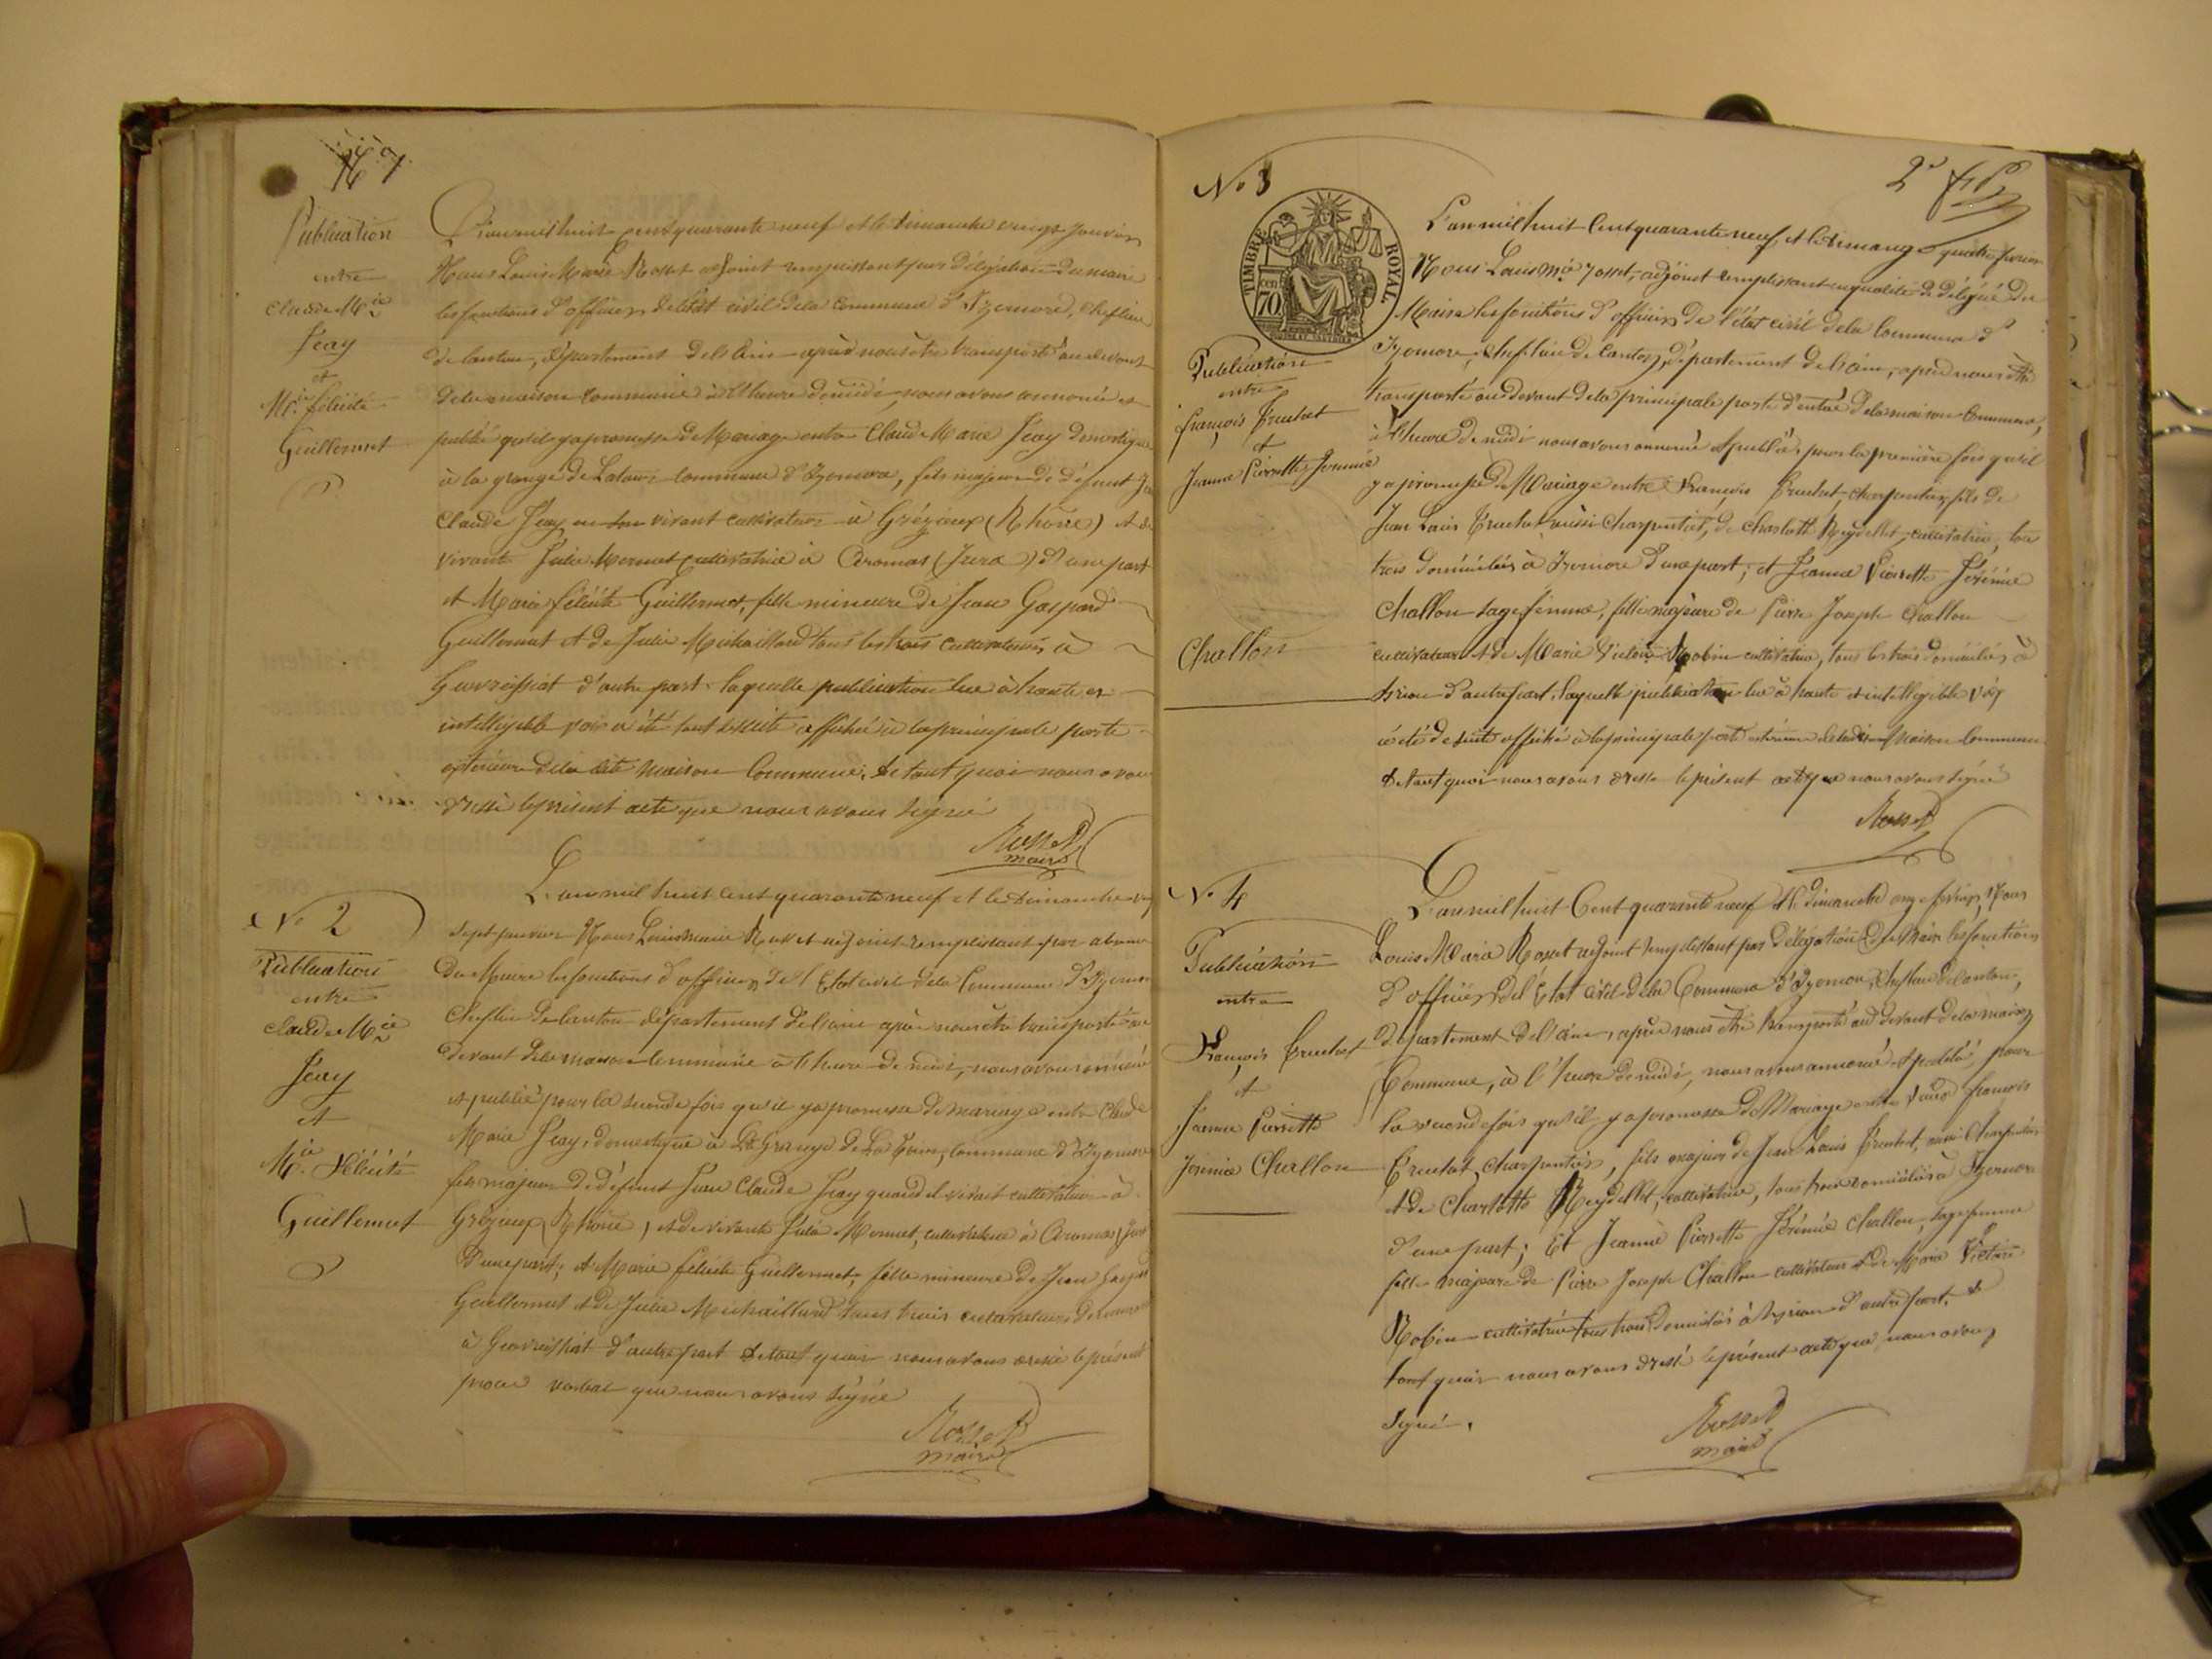 No 1
Publication
entre
Claude Mie
Jeay
et
Mie félicité
Guillermet
L'an mil huit cent quarante neuf et le dimanche vingt Janvier
Nous Louis Marie Rosset adjoint remplissant par délégation du maire
les fonctions d'officier de l'état civil de la commune d'Izernore, chef lieu
de canton, département de l'Ain après nous être transporté au devant
de la maison commune à l'heure de midi, nous avons annoncé et
publié qu'il y a promesse de Mariage entre Claude Marie Jeay domestique
à la grange de Latour, commune d'Izernore, fils majeur de défunt Jn
Claude Jeay en son vivant cultivateur à Grézieux (Rhône) et de
vivante Julie Mermet cultivatrice à Aromas (Jura) d'une part
et Marie félicité Guillermet, fille mineure de Jean Gaspard
Guillermet et de Julie Michaillard tous les trois cultivateurs à
Geovreissiat d'autre part. laquelle publication lue à haute et
intelligible voix a été tout desuite affichée à la principale porte
extérieure de la dite maison Commune. De tout quoi nous avons
dressé le présent acte que nous avons signé
Rosset
maire
No 2
Publication
entre
Claude Mie
Jeay
et
Mie Félicité
Guillermet
L'an mil huit cent quarante neuf et le dimanche vingt
sept janvier Nous Louis Marie Rosset adjoint remplissant par absence
du Maire les fonctions d'officier de l'Etat civil de la Commune d'Izernore
Chef lieu de canton département de l'ain après nous être transporté au
devant de la maison commune à l'heure de midi, nous avons annoncé
et publié pour la seconde fois qu'il y a promesse de mariage entre Claude
Marie Jeay, domestique à La Grange de La Tour, commune d'Izernore
fils majeur de défunt Jean Claude Jeay quand il vivait cultivateur à
Grézieux (Rhône) et de vivante Julie Mermet, cultivatrice à Aromas (Jura
d'une part; et Marie félicité Guillermet, fille mineure de Jean Gaspard
Guillermet et de Julie Michaillard tous trois cultivateurs demeurant
à Geovreissiat d'autre part de tout quoi nous avons dressé le présent
procès verbal que nous avons signé
Rosset
maire
2e
No 3
TIMBRE ROYAL
70
Publication
entre
François Truchet
et
Jeanne Pierrette Jérémie
Challon
L'an mil huit Cent quarante neuf, et le dimanche quatre fevrier
Nous Louis Mie Rosset, adjoint remplissant en qualité de délégué du
Maire les fonctions d'officier de l'état civil de la Commune d'
Izernore, chef lieu de canton, département de l'ain, après nous être
transporté au devant de la principale porte d'entrée de la maison Commune,
à l'heure de midi nous avons annoncé et publié, pour la première fois qu'il
y a promesse de Mariage entre François Truchet, charpentier, fils de
Jean Louis Truchet aussi charpentier, de Charlotte Reydellet, cultivatrice, tous
trois domiciliés à Izernore d'une part; et Jeanne Pierrette Jérémie
Challon sage femme, fille majeure de Pierre Joseph Challon
cultivateur et de Marie Victoire Robin cultivatrice, tous les trois domiciliés à
d'autre part. Laquelle publication lue à haute et intelligible voix
a été de suite affichée à la principale porte extérieure de la dite Maison Commune
De tout quoi nous avons dressé le présent acte que nous avons signé
Rosset
No 4
Publication
entre
François Truchet
et
Jeanne Pierrette
Jérémie Challon
L'an mil huit Cent quarante neuf et le dimanche onze fevrier, Nous
Louis Marie Rosset adjoint remplissant par délégation du Maire les fonctions
d'officier de l'Etat civil de la Commune d'Izernore, chef lieu de canton,
département de l'ain, après nous être transporté au devant de la maison
Commune, à l'heure de midi, nous avons annoncé et publié, pour
la seconde fois qu'il y a promesse de Mariage entre François
Truchet, charpentier, fils majeur de Jean Louis Truchet, aussi Charpentier
et de Charlotte Reydellet, cultivatrice, tous trois domiciliés à Izernore
d'une part; Et Jeanne Pierrette Jérémie Challon, sage femme
fille majeure de Pierre Joseph Challon cultivateur et de Marie Victoire
Robin cultivatrice tous trois domiciliés à d'autre part, de
tout quoi nous avons dressé le présent acte que nous avons
signé.
Rosset
maire